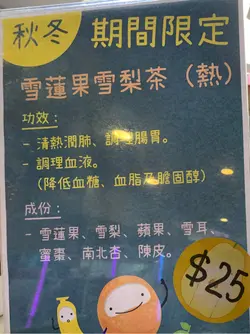 秋冬 期間限定
雪蓮果雪梨茶（熱）
功效：
- 清熱潤肺、調理腸胃。
- 調理血液。
（降低血糖、血脂及膽固醇）
成份：
- 雪蓮果、雪梨、蘋果、雪耳、
蜜棗、南北杏、陳皮。
$25